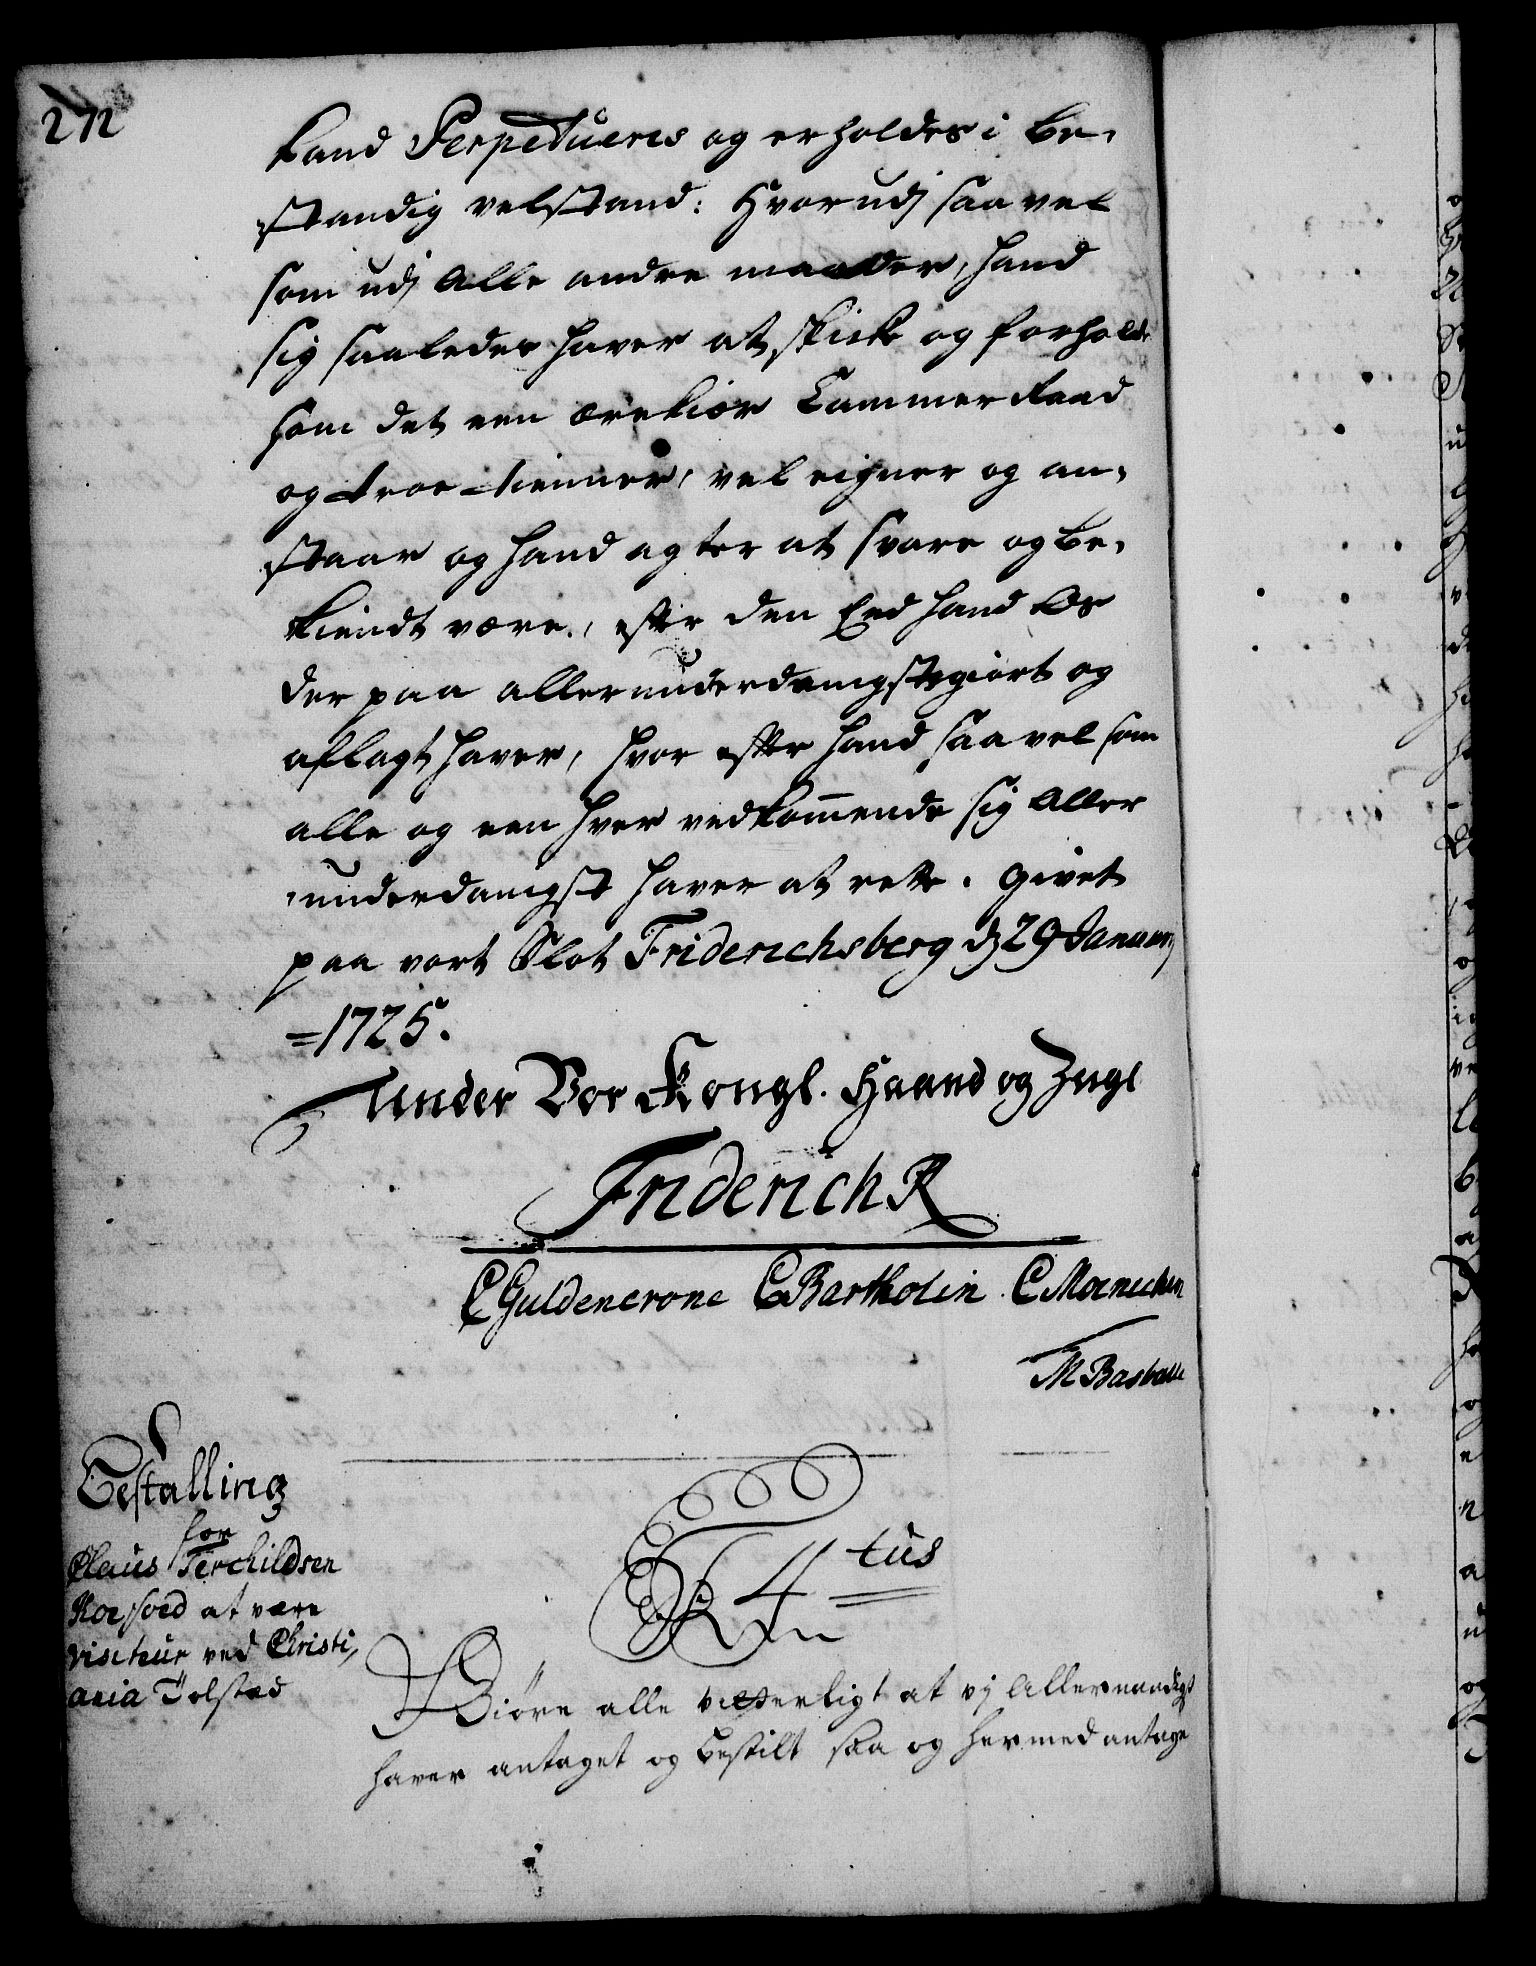 272
kand Perpetueres og erholdes i be,
standig velstand: Hvorudj saavel
som udj alle andre maader, hand
sig saaledes haver at skicke og forholde
som det een ærekiær Cammer Raad
og troe tienner, vel eigner og an,
staar og hand agter at svare og be,
kiendt være, efter den Eed hand Os
der paa allerunderdanigst giort og
aflagt haver, hvor efter hand saavel som
alle og een hver vedkom̄ende sig aller
underdanigst haver at rette. Givet
paa vort Slot Friderichsberg d 29 Januarij
=1725.
Under Vor Kongl. Haand og Zegl
Friderich R
C Guldencrone C Bartholin C Moinichen
M Basballe
Bestalling
for
Claus Terchildsen
Roesoed at være
visiteur ved Christi,
ania Tolsted
F 4tus
Giøre alle vitterligt at vj Allernaadigst
haver antaget og bestilt saa og hermed antage